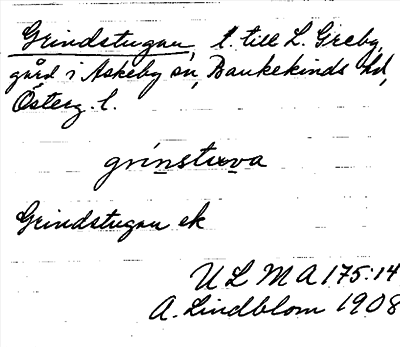 Grindstugan, t. till L. Greby,
gård i Askeby sn, Bankekinds hd,
Österg. l.
grinstuva
Grindstugan ek
ULMA 175:14
A. Lindblom 1908